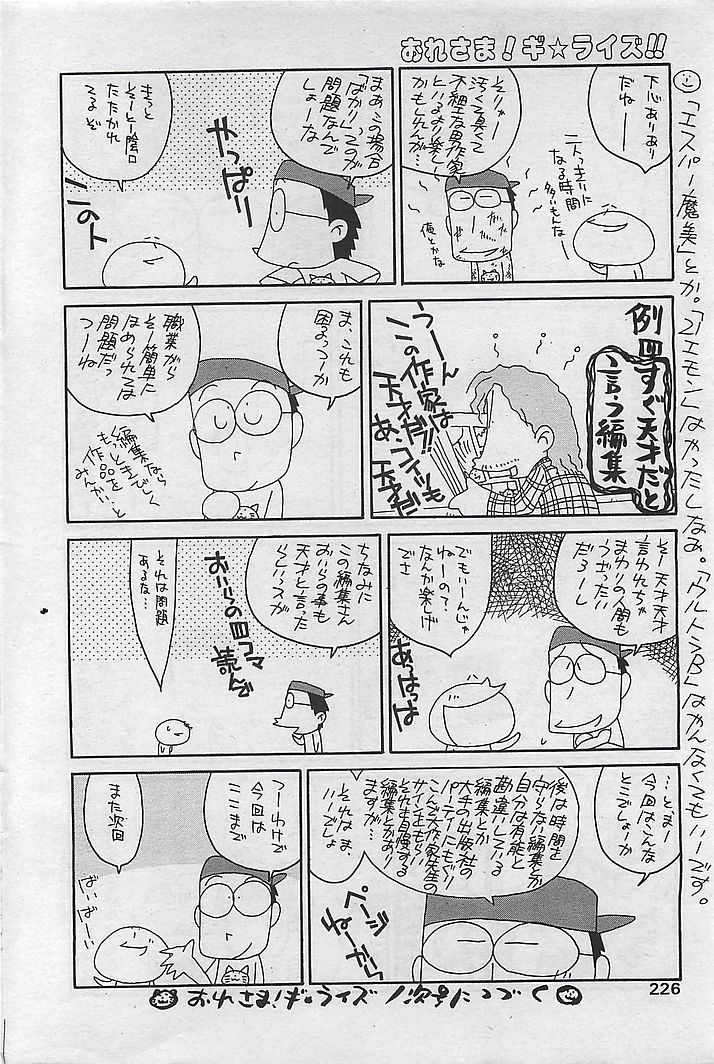 むれさま!ギ☆ライズ!!
「エスパー魔美」とか。「21エモン」はやったしなぁ。「ウルトラB」はやんなくてもいーです。
下心ありあり
だねーー
二人っきりに
なる時間
多いもんなー
そりゃー
汚くて臭くて
不細工な男作家
といるより楽しー
かもしれんが…
俺とかな
まあこの場合
「ばかり」ってのが
問題なんで
しょーな
やっぱりー
きっと
そーとー陰口
たたかれ
てるぞ
このト
例四
すぐ天才だと
言う編集
うーん
この作家は
天才だ!!
あ、コイツも
天才だ
ま、これも
困るっつーか
職業がら
そー簡単に
ほめられては
問題だっ
つーね
編集なら
もっときびしく
作品を
みんか…と
そー天才天才
言われちゃ
まわりの人間も
うざったい
だろーし
でもいーんじゃ
ねーの?
なんか楽しげ
でさ
あっはっは
ちなみに
この編集さん
おいらの事も
天才と言った
らしいっスが
おいらの四コマ
読んで
それは問題
あるな…
…とまー
今回はこんな
とこでしょーか
後は時間を
守らない編集とか
自分は有能と
勘違いしている
編集とか
大手の出版社の
パーティにもぐり
こんで作家先生の
サイン色もらい
それを自慢する
編集とかあり
ますが…
それはま、
いーでしょ
ページ
ねーから
つーわけで
今回は
ここまで
また次回
ばいばーい
おれさま!ギ☆ライズ/次号につづく
226